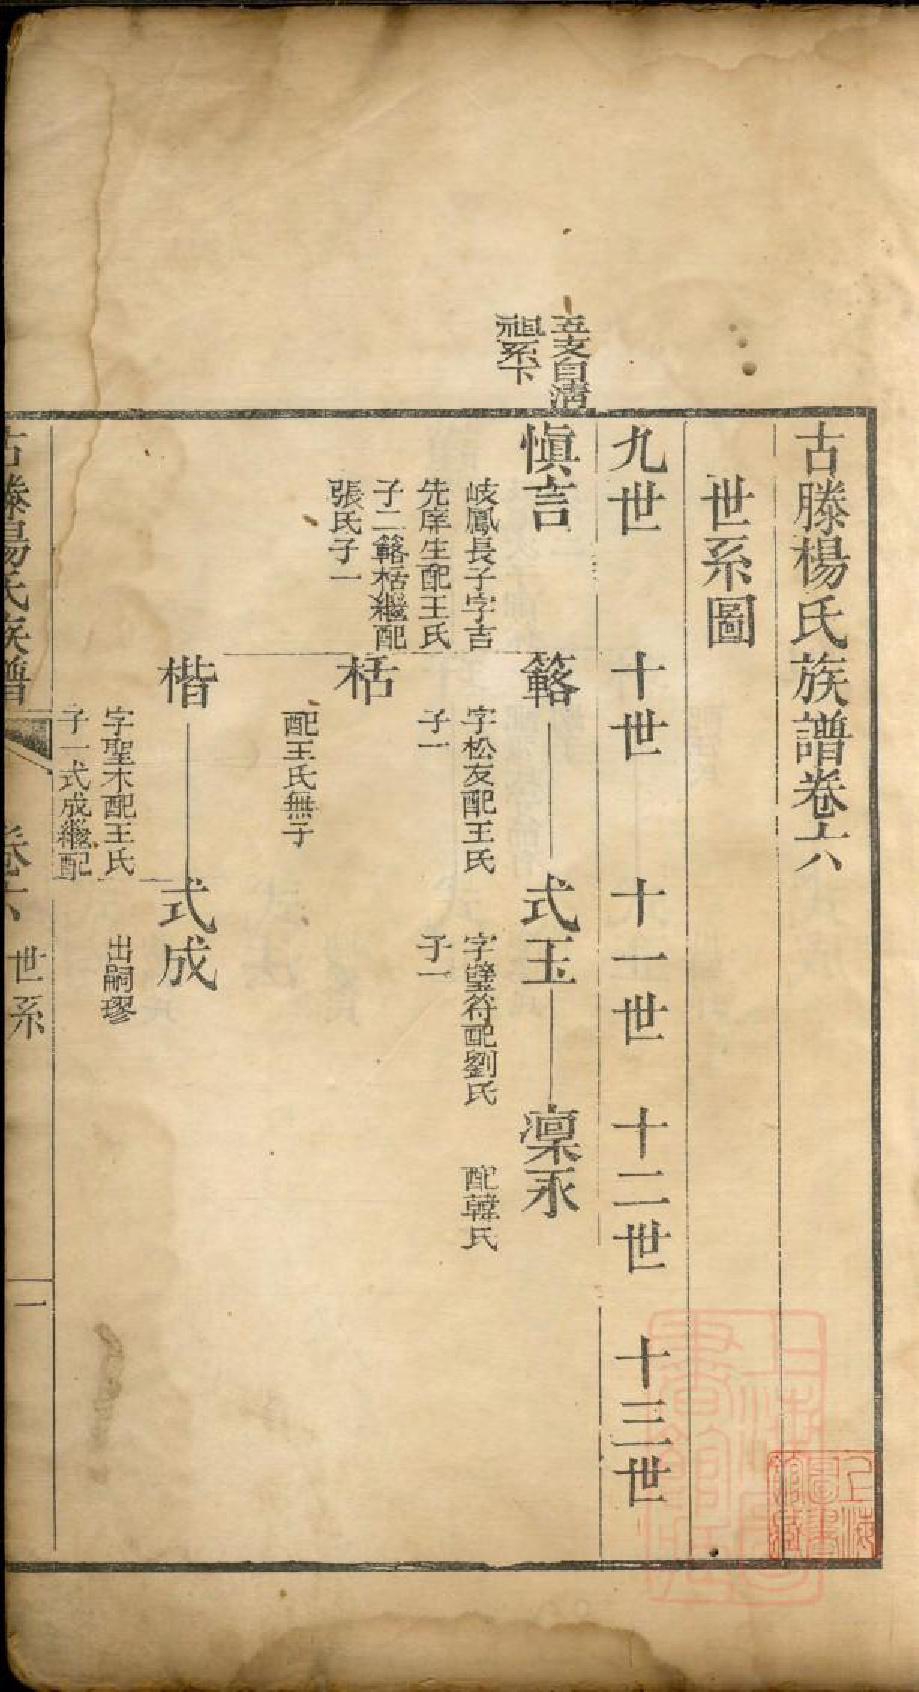 古滕楊氏族譜卷六
世系圖
九世 十世 十一世 十二世 十三世
五支自清
祖系下
愼言
岐鳳長子字吉
先庠生配王氏
子二簵楛繼配
張氏子一
簵
字松友配王氏
子一
式玉
字璧符配劉氏
子一
凛永
配韓氏
楛
配王氏無子
楷
字聖木配王氏
子一式成繼配
式成
出嗣璆
古滕楊氏族譜 卷六 世系 一
上海圖書館藏